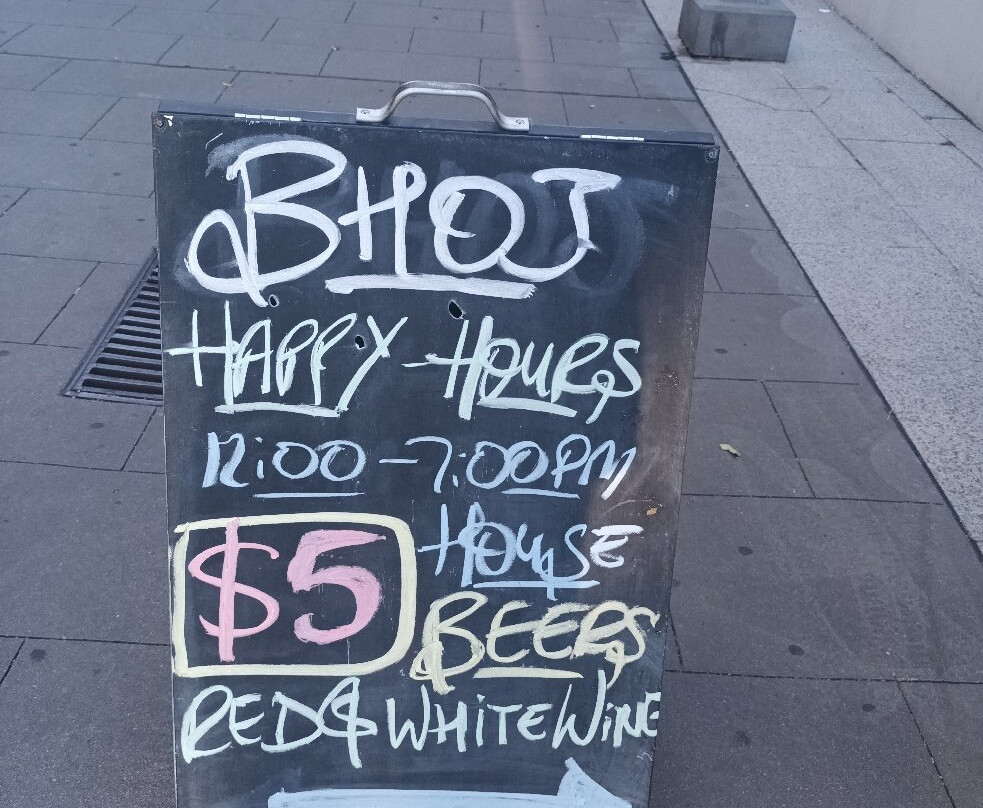 BHOJ
HAPPY-HOURS
12:00-7:00PM
$5 HOUSE
BEERS
RED & WHITE WINE